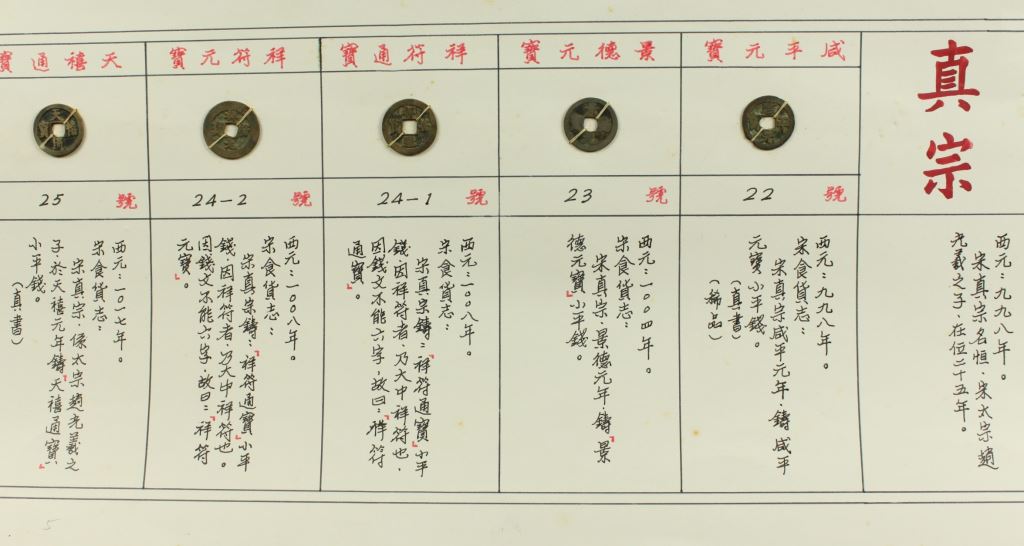 真宗
西元：九九八年。
宋真宗名恒．宋太宗趙
光義之子．在位二十五年。
咸平元寶
22 號
西元：九九八年。
宋食貨志：
宋真宗咸平元年．鑄咸平
元寶．小平錢。
（真書）
（稀品）
景德元寶
23 號
西元：一〇〇四年。
宋食貨志：
宋真宗．景德元年．鑄「景
德元寶」小平錢。
祥符通寶
24-1 號
西元：一〇〇八年。
宋食貨志：
宋真宗鑄：「祥符通寶」小平
錢．因祥符者．乃大中祥符也．
因錢文不能六字．故曰：「祥符
通寶」。
祥符元寶
24-2 號
西元：一〇〇八年。
宋食貨志：
宋真宗鑄：「祥符通寶」小平
錢．因祥符者．乃大中祥符也。
因錢文不能六字．故曰：「祥符
元寶」。
天禧通寶
25 號
西元：一〇一七年。
宋食貨志：
宋真宗．係太宗趙光義之
子．於天禧元年鑄「天禧通寶」
小平錢。
（真書）
5